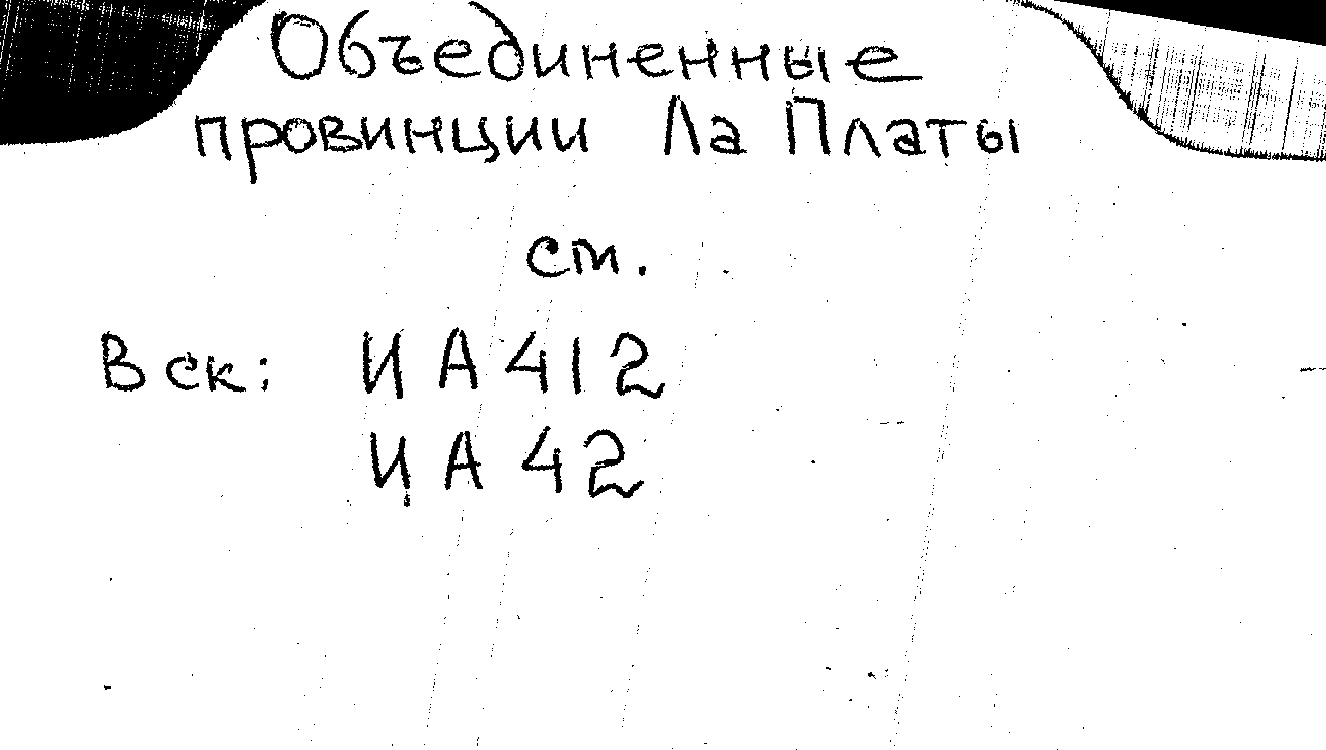 Объединенные
провинции Ла Платы
ст.
В ск: И А 412
И А 42